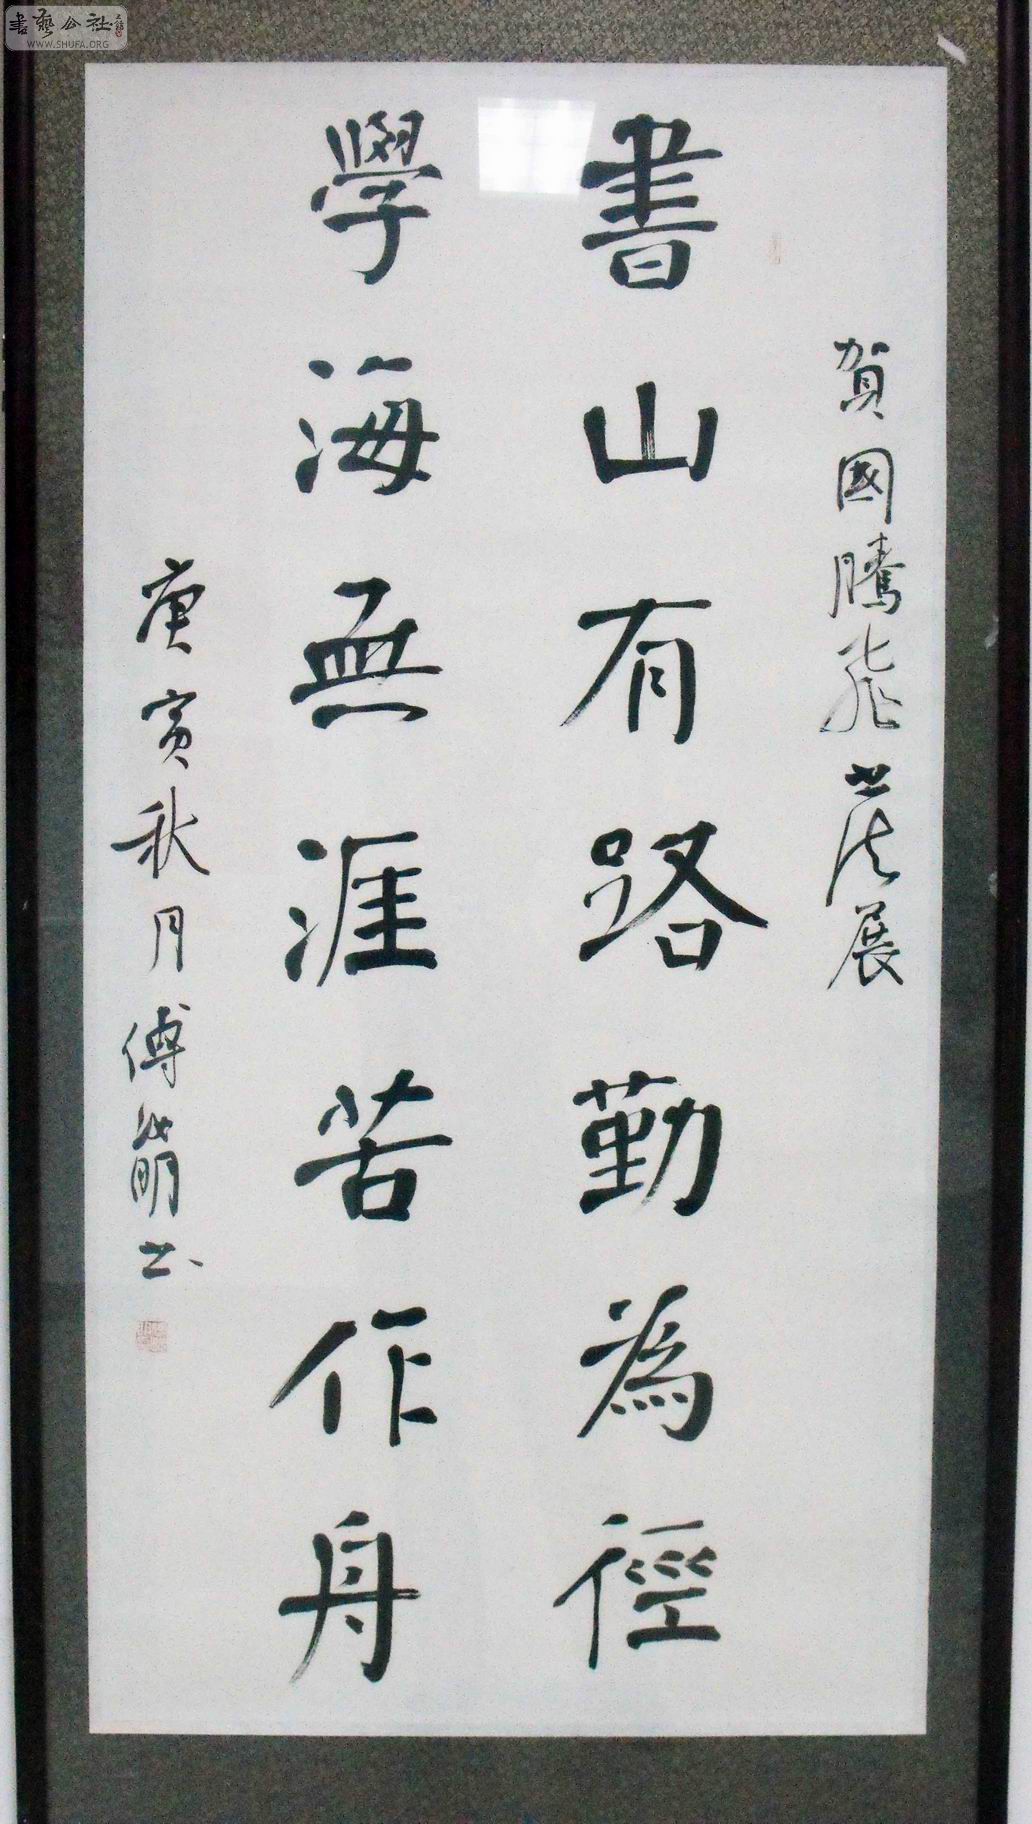 賀國騰飛书法展
書山有路勤為徑
學海無涯苦作舟
庚寅秋月傅明书
書藝公社
WWW.SHUFA.ORG